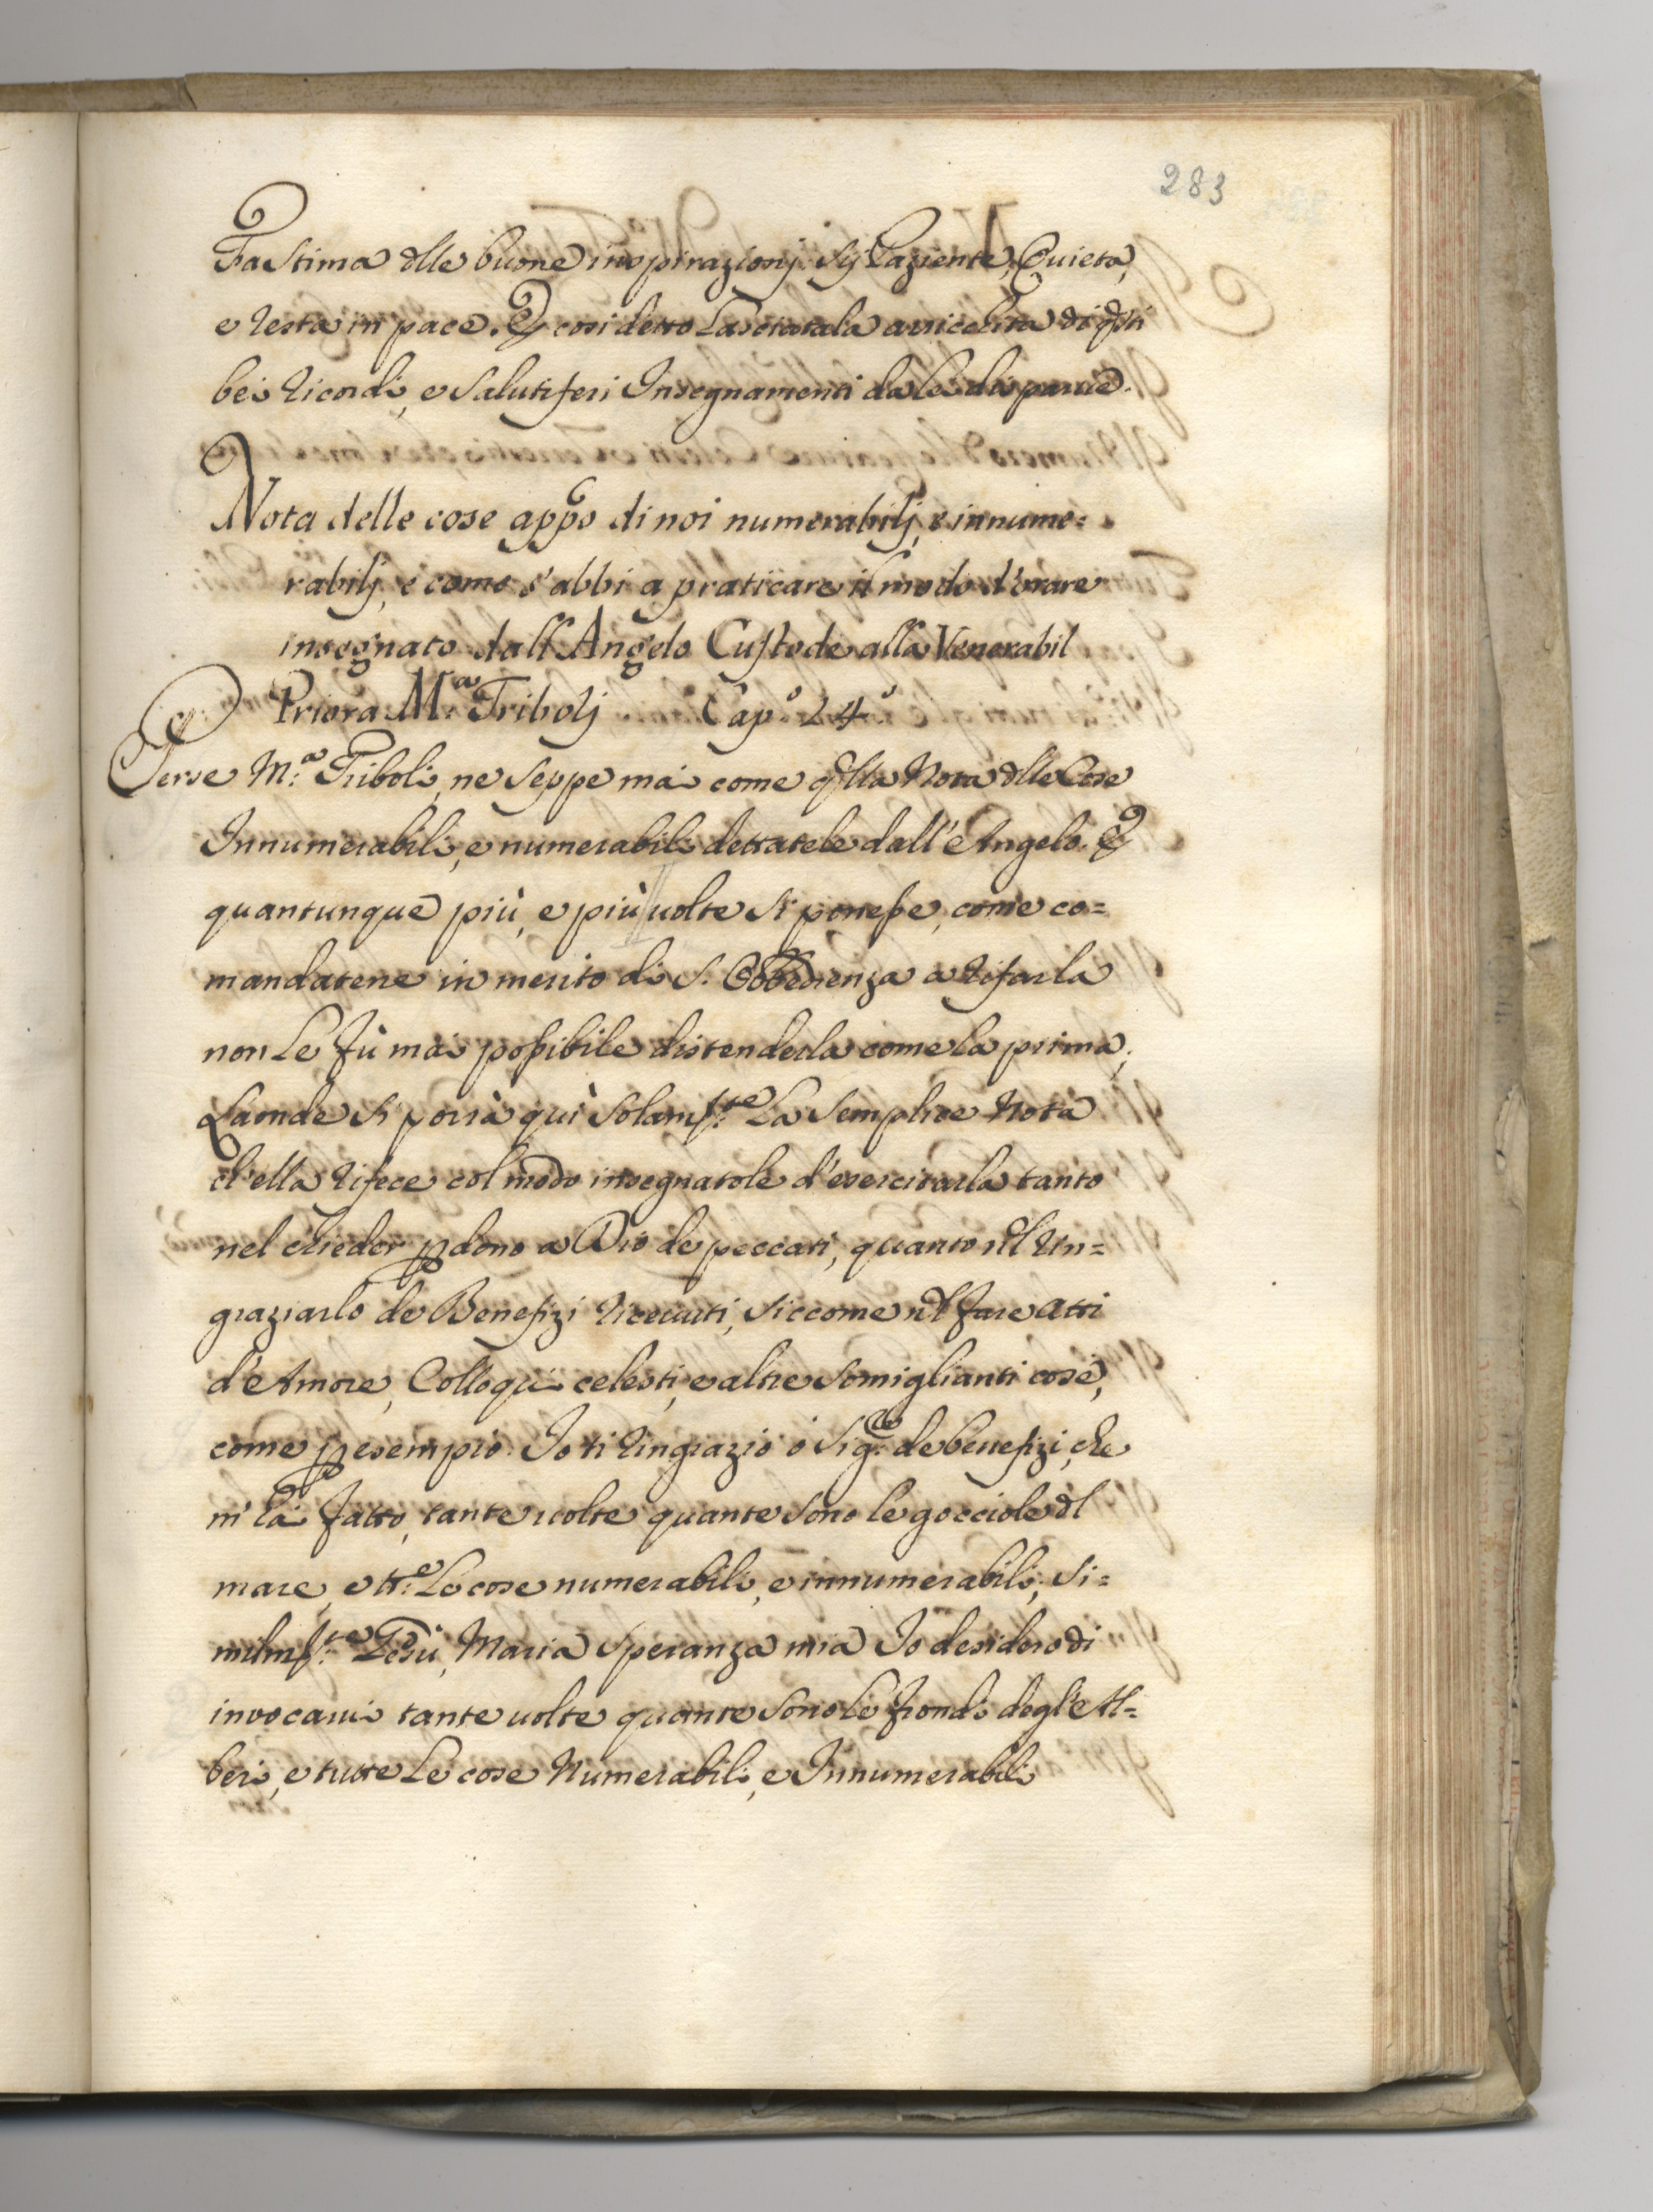 283
Fa Stima dlle buone inspirazionj. Sij Paziente, Quieta,
e resta in pace. E cosi detto Lasciatala arricchita di qsti
bei ricordi, e Salutiferi Insegnamenti da Lei disparue.
Nota delle cose appo di noi numerabilj, e innume=
rabilj, e come s'abbi a praticare il modo d'orare
insegnato dall'Angelo Custode alla Venerabil
Priora Mª Tribolj Cap.º 24º
Perse M:ª Triboli, ne Seppe mai come qlla Nota dlle Cose
Innumerabili, e numerabili dettatele dall'Angelo. E
quantunque più, e più uolte Si ponesse, come co=
mandatene in merito di S. Obbedienza a rifarla
non Le fù mai possibile distenderla come la prima;
Laonde Si porrà quì Solamte La Semplice Nota
ch'ella rifece col modo insegnatole d'esercitarla tanto
nel chieder pdono a Dio de peccati, quanto nl rin=
graziarlo de Benefizi riceuuti, Siccome nl fare atti
d'Amore, Colloqui celesti, e altre Somiglianti cose,
come p esempio. Io ti ringrazio ò Sig:re de benefizi, che
m'hà fatto, tante uolte quante Sono le gocciole dl
mare, e tt:e Le cose numerabili, e innumerabili; Si=
milmte Gesù, Maria Speranza mia Io desidero di
invocarui tante uolte quante Sono Le frondi degl'Al=
beri, e tutte Le cose Numerabili, e Innumerabili